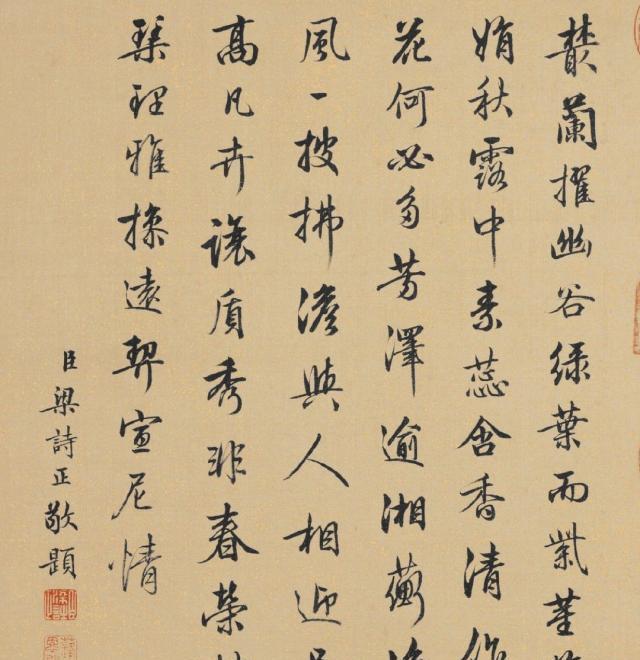 叢蘭擢幽谷緑葉而紫莖
娟秋露中素蕊含香清
花何必多芳澤逾湘蘅
風一披拂澹與人相迎
高凡卉讓盾秀非春榮
琴理雅操遠契宣尼情
臣梁詩正敬題